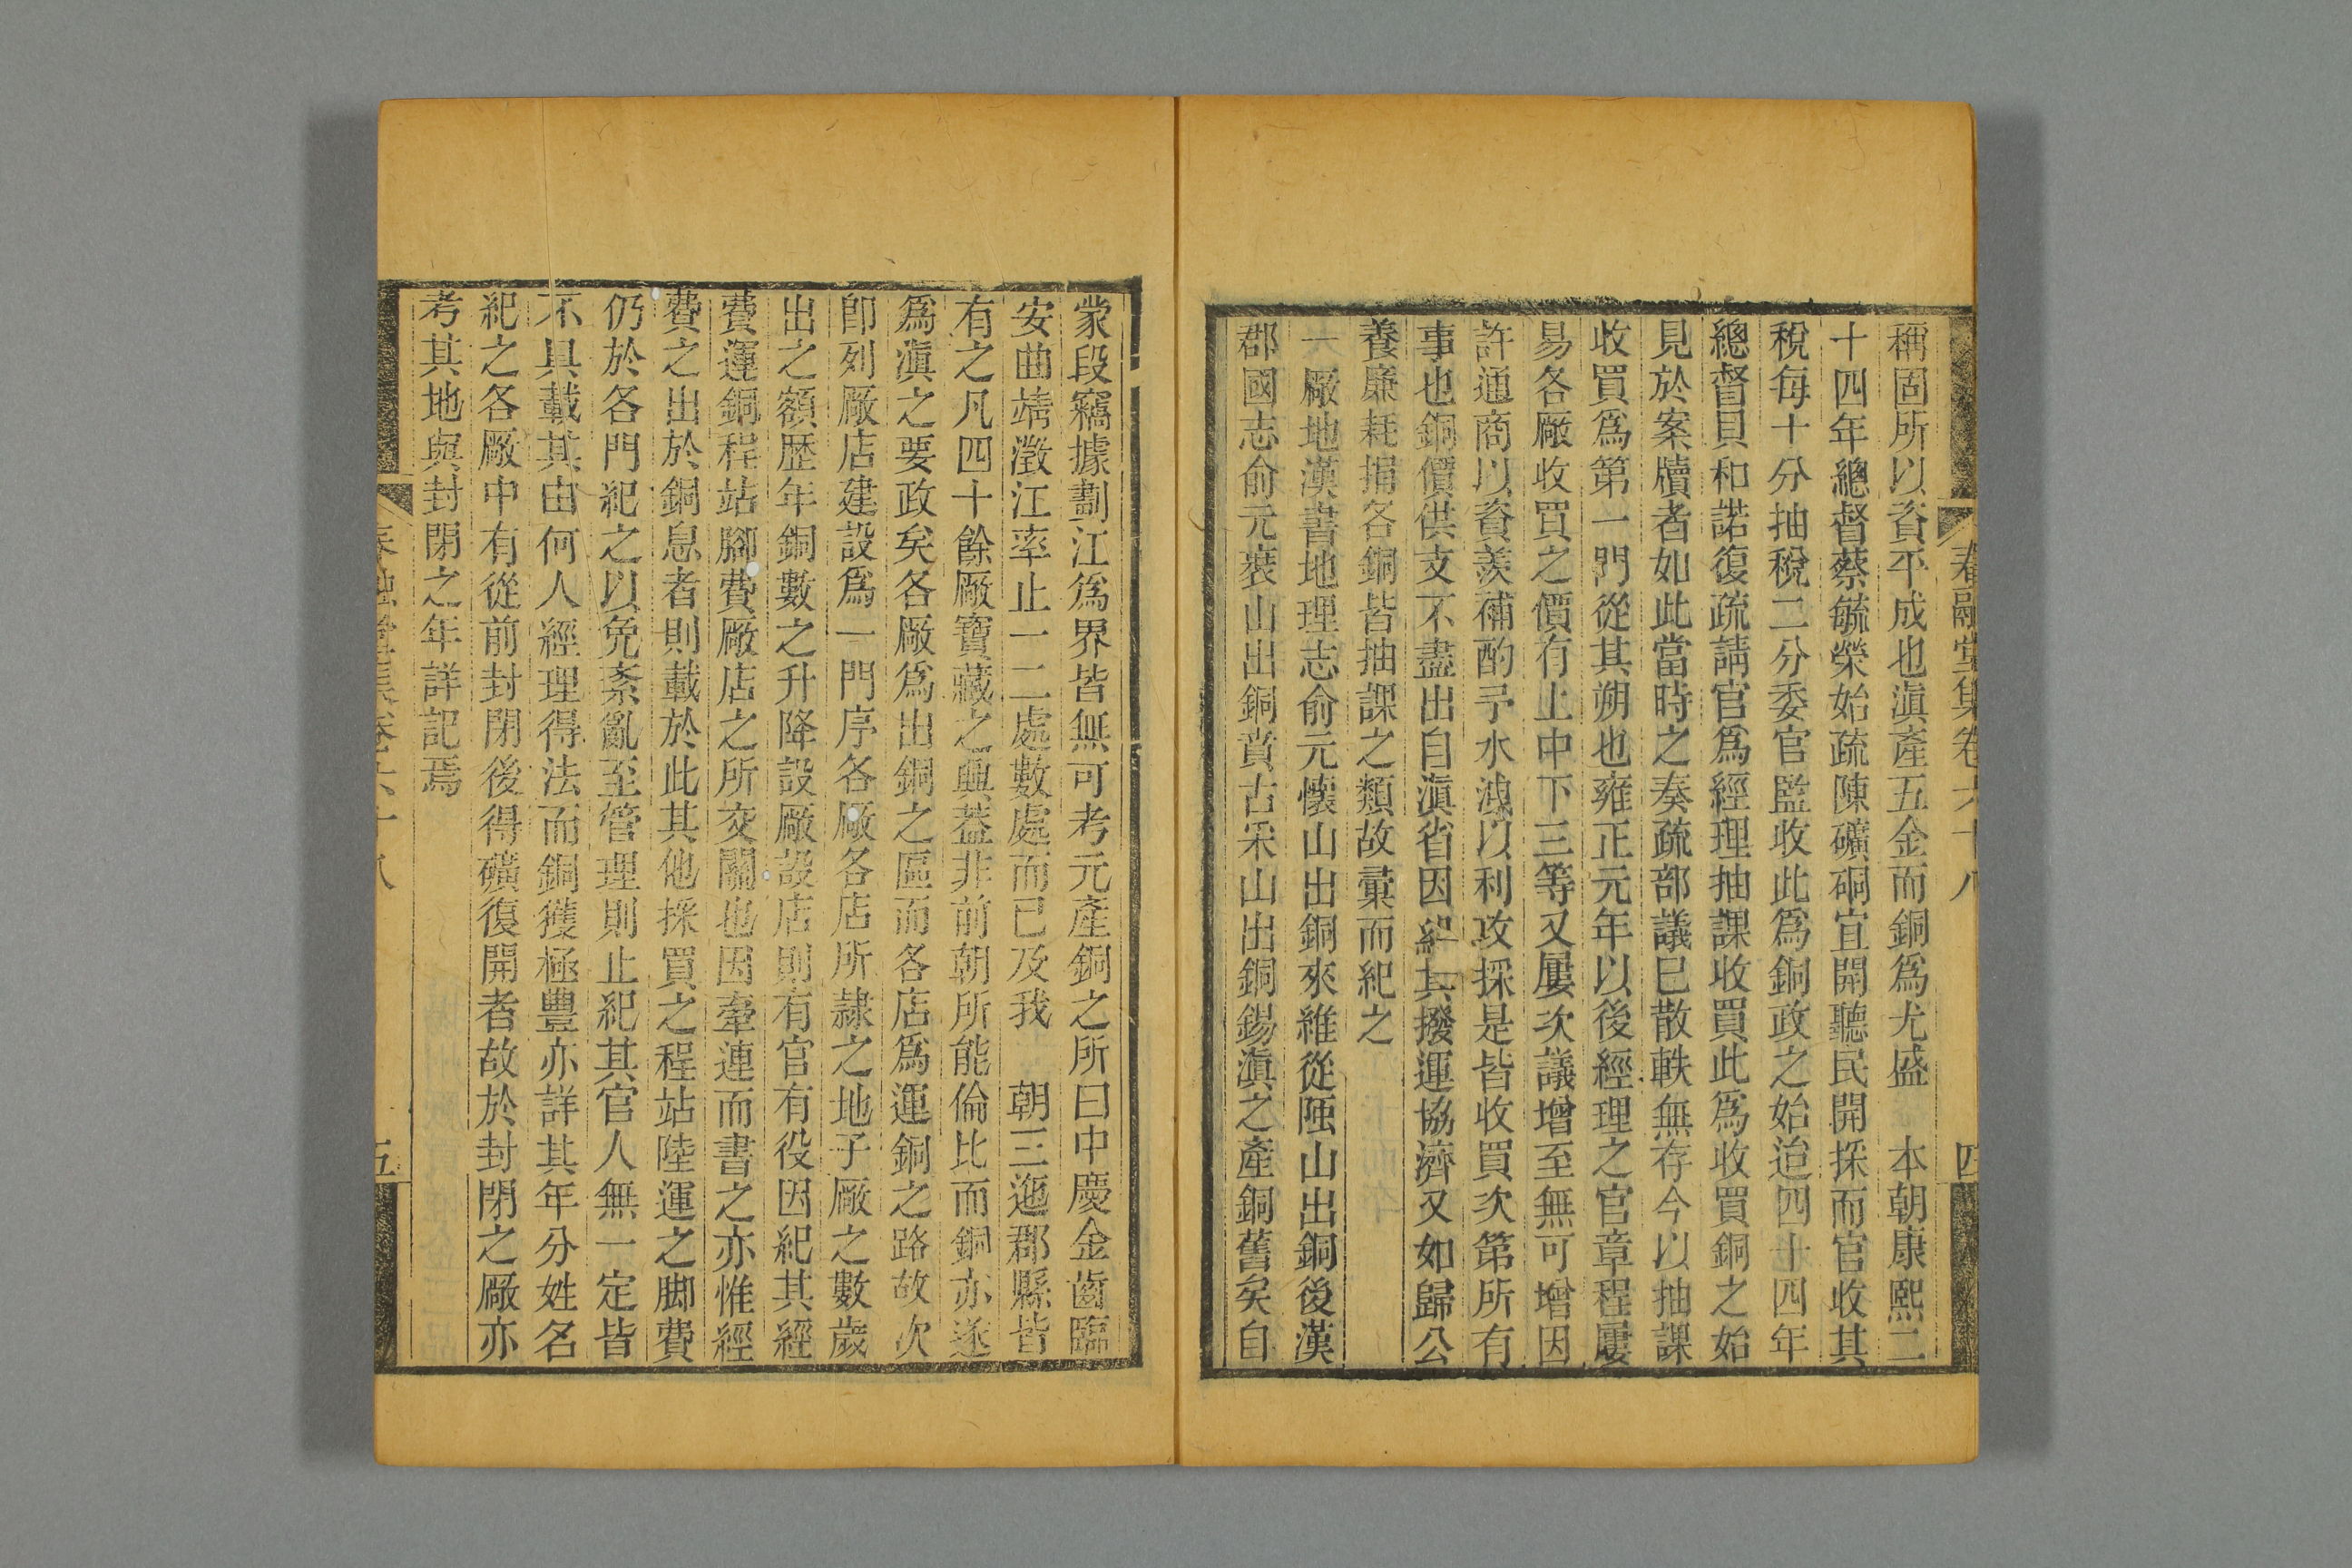 春融堂集卷六十八
四
稱固所以資平成也滇產五金而銅爲尤盛 本朝康熙二
十四年總督蔡毓榮始疏陳礦硐宜開聽民開採而官收其
稅每十分抽稅二分委官監收此爲銅政之始迨四十四年
總督貝和諾復疏請官爲經理抽課收買此爲收買銅之始
見於案牘者如此當時之奏疏部議已散軼無存今以抽課
收買爲第一門從其朔也雍正元年以後經理之官章程屢
易各厰收買之價有上中下三等又屢次議增至無可增因
許通商以資羡補酌予水洩以利攻採是皆收買次第所有
事也銅價供支不盡出自滇省因紀其撥運協濟又如歸公
養廉耗捐各銅皆抽課之類故彚而紀之
一厰地漢書地理志俞元懷山出銅來維從陒山出銅後漢
郡國志俞元裝山出銅賁古采山出銅錫滇之產銅舊矣自
蒙段竊據劃江爲界皆無可考元產銅之所曰中慶金齒臨
安曲靖澂江率止一二處數處而已及我 朝三迤郡縣皆
有之凡四十餘厰寶藏之興葢非前朝所能倫比而銅亦遂
爲滇之要政矣各厰爲出銅之區而各店爲運銅之路故次
卽列厰店建設爲一門序各厰各店所隷之地子厰之數歲
出之額歴年銅數之升降設厰設店則有官有役因紀其經
費運銅程站腳費厰店之所交關也因牽連而書之亦惟經
費之出於銅息者則載於此其他採買之程站陸運之脚費
仍於各門紀之以免紊亂至管理則止紀其官人無一定皆
不具載其由何人經理得法而銅獲極豐亦詳其年分姓名
紀之各厰中有從前封閉後得礦復開者故於封閉之厰亦
考其地與封閉之年詳記焉
春融堂集卷六十八
五